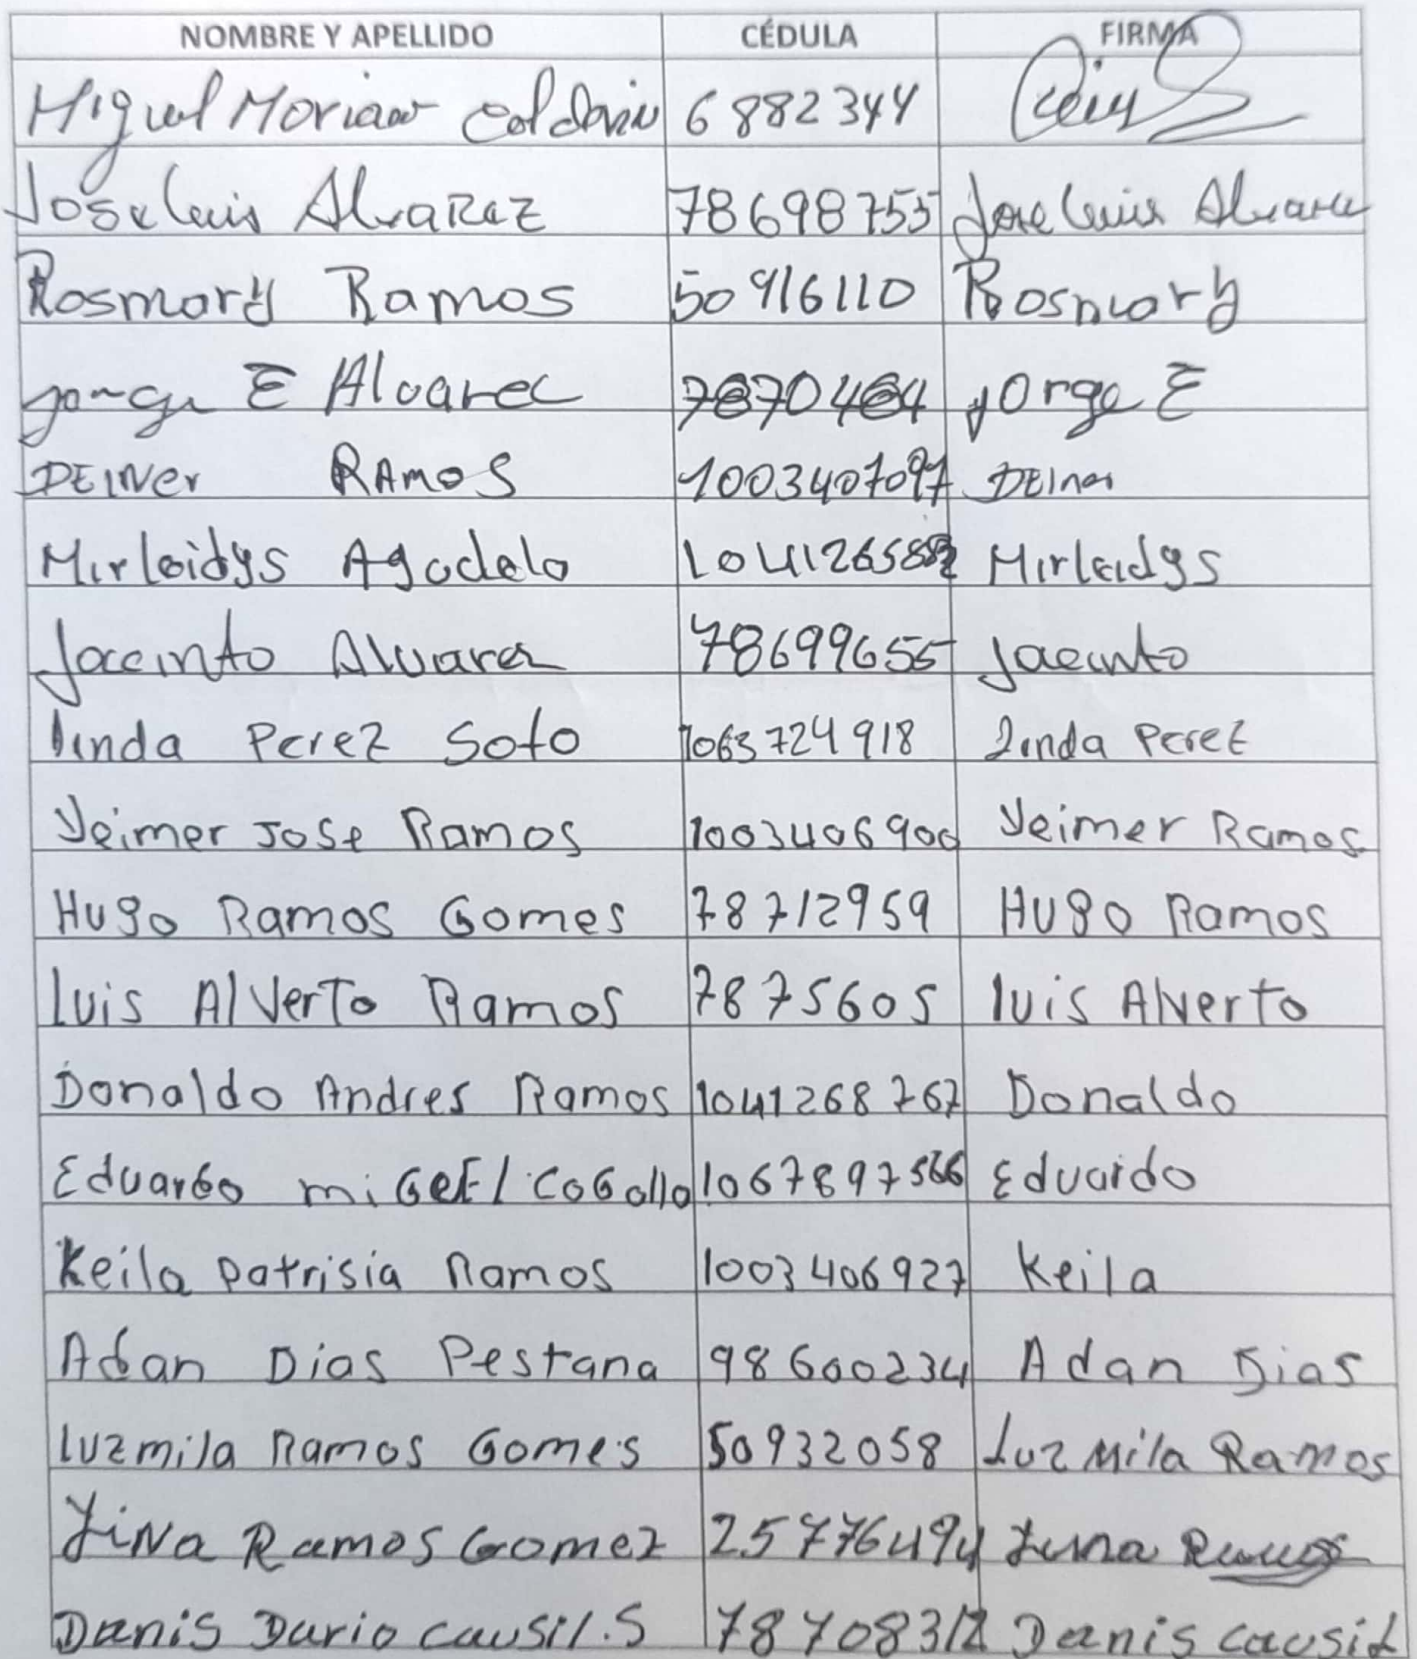 NOMBRE Y APELLIDO CÉDULA FIRMA
Miguel 6882344
Jose Luis Alvarez 78698755 Jose Luis Alvarez
Rosmary Ramos 50916110 Rosmary
Jorge E Alvarez Jorge E
DEINer RAmos 1003407097 DEIner
Mirleidys Agudelo Mirleidys
Jacinto Alvarez 78699655 Jacinto
linda Perez Soto 1063724918 Linda Perez
Yeimer Jose Ramos 1003406900 Yeimer Ramos
Hugo Ramos Gomes 78712959 Hugo Ramos
luis Alverto Ramos 7875605 luis Alverto
Donaldo Andres Ramos 1041268767 Donaldo
Eduardo miGeEl CoGollo 1067897566 Eduardo
Keila patrisia Ramos 1003406927 Keila
Adan Dias Pestana 98600234 Adan Dias
luzmila Ramos Gomes 50932058 Luz Mila Ramos
YiNa Ramos Gomez 25776494 Yina Ramos
Danis Dario causil.S Danis causil